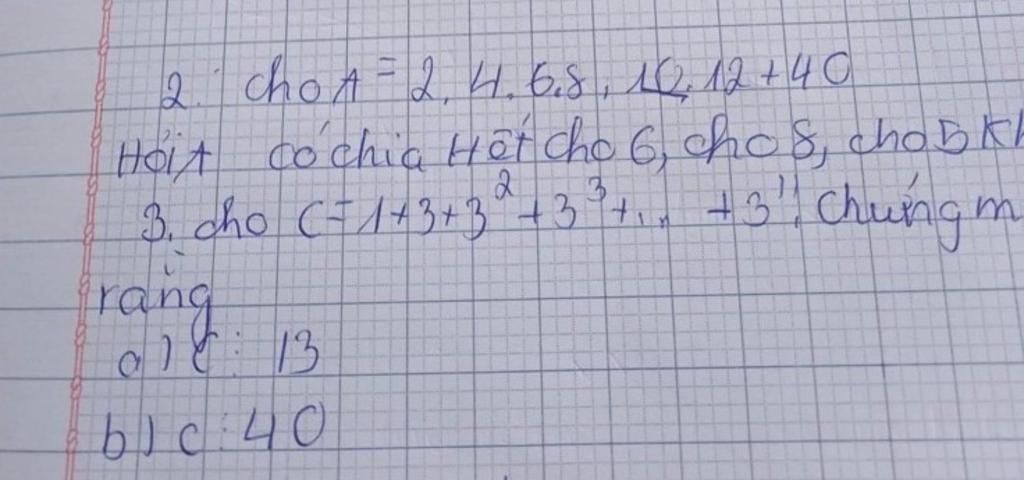 2. cho A = 2. 4. 6.8. 10.12+40
Hỏi A có chia Hết cho 6, cho 8, cho 5 Kh
3. cho C=1+3+3²+3³+... +3¹¹. Chứng m
rằng
a) C ⋮ 13
b) C ⋮ 40